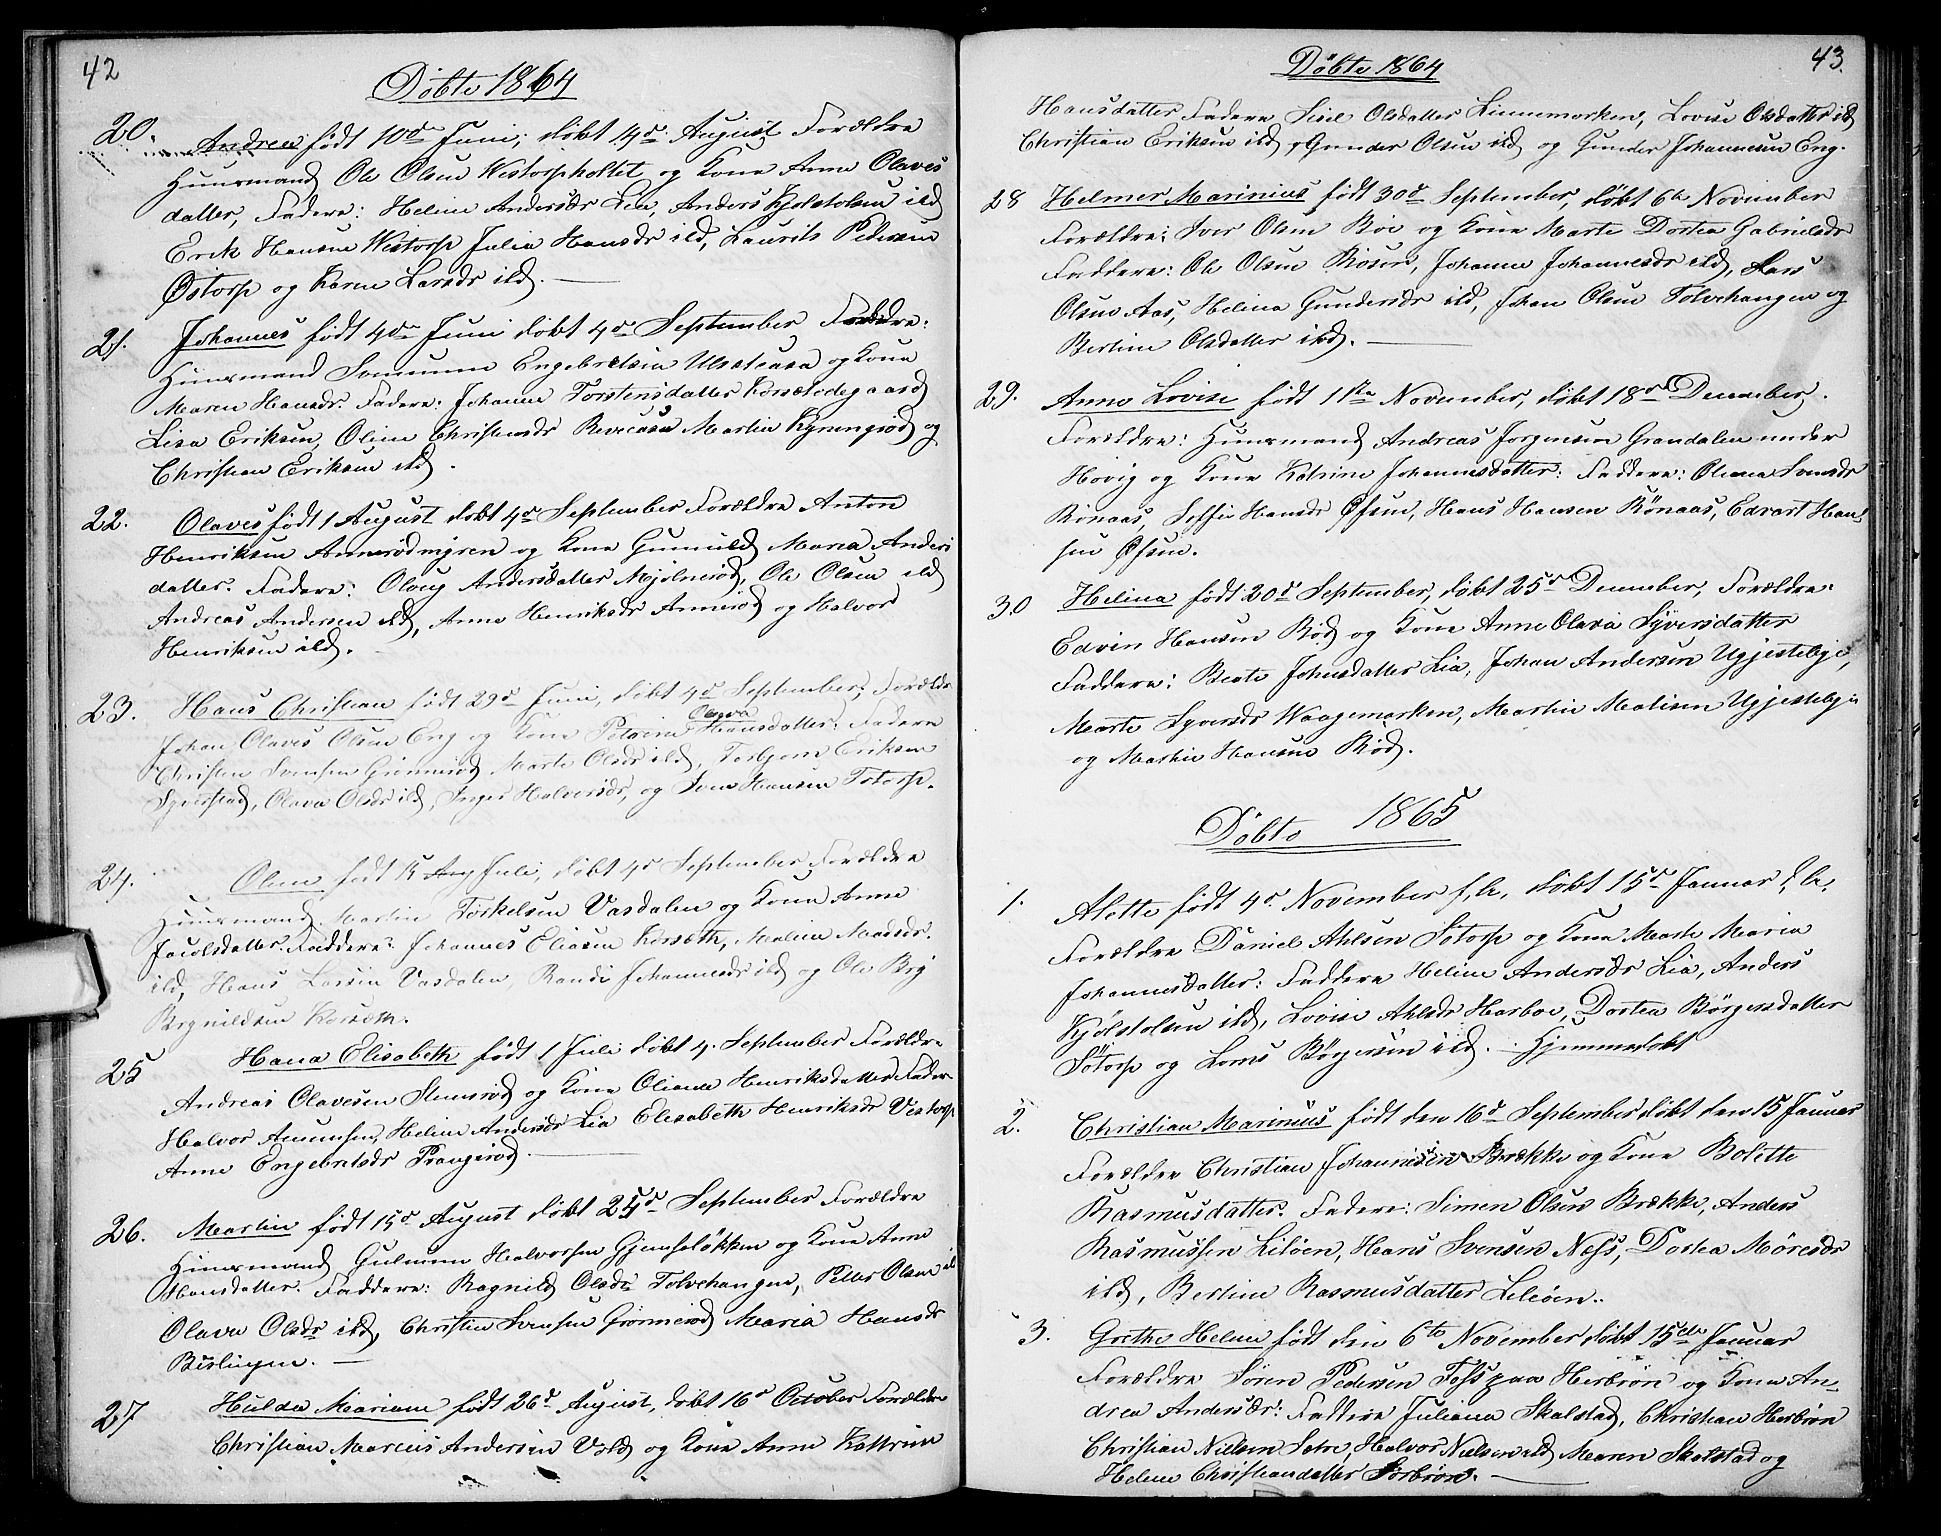 42
Döbte 1864
20. Andrea født 10de Juni, döbt 14de August Forældre
Huusmand Ole Olsen Westorpholtet og Kone Anne Olaves
datter, Fadere: Heline Andersdr Lia, Anders Kjolstolsen ibd
Erik Hansen Westorp Julia Hansdr ibd, Laurits Pedersen
Östorp og Karen Larsdr ibd.
21. Johannes født 4de Juni döbt 4de September Forældre:
Huusmand Engebretsen og Kone
Maren Hansdr. Fadere: Johanne Torstensdatter Korsætødegaard
Lisa Eriksen, Oline Christensdr Martin og
Christian Eriksen ibd.
22. Olaves født 1 August döbt 4de September Forældre Anton
Henriksen Annerödmyren og Kone Gunnild Maria Anders
datter. Fadere: Oloug Andersdatter Mjölneröd, Ole Olsen ibd
Andreas Andersen ibd, Anne Henriksdr Anneröd og Halvor
Henriksen ibd.
23. Hans Christian født 29d Juni, döbt 4d September, Forældr
Johan Olaves Olsen Eng og Kone Petrine Olava Hansdatter. Fadere
Christen Svensen Grönneröd Marte Olsdr ibd, Torbjørn Eriksen
Syverstad, Olava Olsdr ibd, Inger Halversdr, og Sven Hansen Totorp.
24. Oline født 15 Aug Juli, döbt 4d September Forældre
Huusmand Martin Torkelsen Vasdalen og Kone Anne
Jacobsdatter. Faddere: Johannes Eliasen Korsæth, Maline Madsdr.
ibd, Hans Larsen Vasdalen, Randi Johannesdr ibd og Ole Brg
Brynildsen Korsæth.
25 Hana Elisabeth født 1 Juli döbt 4. September Forældre
Andreas Olavesen Steneröd og Kone Oliane Henriksdatter Fader
Halvor Amundsen, Heline Andersdr Lia Elisabeth Henriksdr Vestorp
Anne Engebretsdr Prangeröd.
26. Martin født 15d August döbt 25d September Forældre
Huusmand Gulmun Halvorsen Gjemselökken og Kone Anne
Hansdatter. Faddere: Ragnild Olsdr Tolvehangen, Petter Olsen ib
Olava Olsdr ibd, Christen Svensen Grönneröd Maria Hansdr
Bislingen.
27 Hulda Mariane født 26d August, döbt 16d October Forældre
Christian Marius Andersen Vold og Kone Anne Kattrine
43.
Döbte 1864
Hansdatter Fadere Sisel Olsdatter Linnemarken, Lovise Olsdatter ibd
Christian Eriksen ibd, Gunder Olsen ibd og Gunder Johannesen Eng.
28 Helmer Marinius født 30d September, döbt 6te November
Forældre: Iver Olsen Röe og Kone Marte Dortea Gabrielsdr
Faddere: Ole Olsen Rösen, Johanne Johannesdr ibd, Lars
Olsen Aas, Helina Gundersdr ibd, Johan Olsen Tolvehangen og
Bertine Olsdatter ibd.
29. Anne Lovise født 1ste November, döbt 18de December.
Forældre: Huusmand Andreas Jorgensen Grandalen under
Hovig og Kone Katrine Johannesdatter. Faddere: Oleana Svensdr
Rönaas, Soffie Hansdr Öfsen, Hans Hansen Rönaas, Edvart Han
sen Öfsen.
30 Helina født 20d September, döbt 25d December, Forældre:
Edvin Hansen Röd og Kone Anne Olava Syversdatter
Faddere: Beate Johnsdatter Lia, Johan Andersen Ugjestebye,
Marte Syversdr Waagemarken, Martin Matisen Ugjestebye
og Martin Hansen Röd.
Döbte 1865
1. Alette født 4d November f,A, döbt 15d Januar d.A.
Forældre Daniel Ahlsen Sötorp og Kone Marte Maria
Johannesdatter: Faddere Heline Andersdr Lia, Anders
Kjölstolsen ibd, Lovise Ahlsdr Harboe, Dortea Börgersdatter
Sötorp og Lorns Börgersen ibd. Hjemmedöbt
2. Christian Marinius født den 16d September döbt den 15 Januar
Forældre Christian Johannesen Brække og Kone Bolette
Rasmusdatter. Fadere: Simen Olsen Brække, Anders
Rasmussen Lilöen, Hans Svensen Næss, Dortea Möresdr
ibd, Bertine Rasmusdatter Lilöen.
3. Grethe Helene født den 6te November döbt 15de Januar
Forældre Sören Pedersen Foss paa Herbrön og Kone An-
drea Andersdr: Faddere Juliana Skalstad, Christian Herbrön
Christian Nielsen Sotre, Halvor Nielsen ibd Maren Skalstad og
Helene Christiandatter Sörbrön.